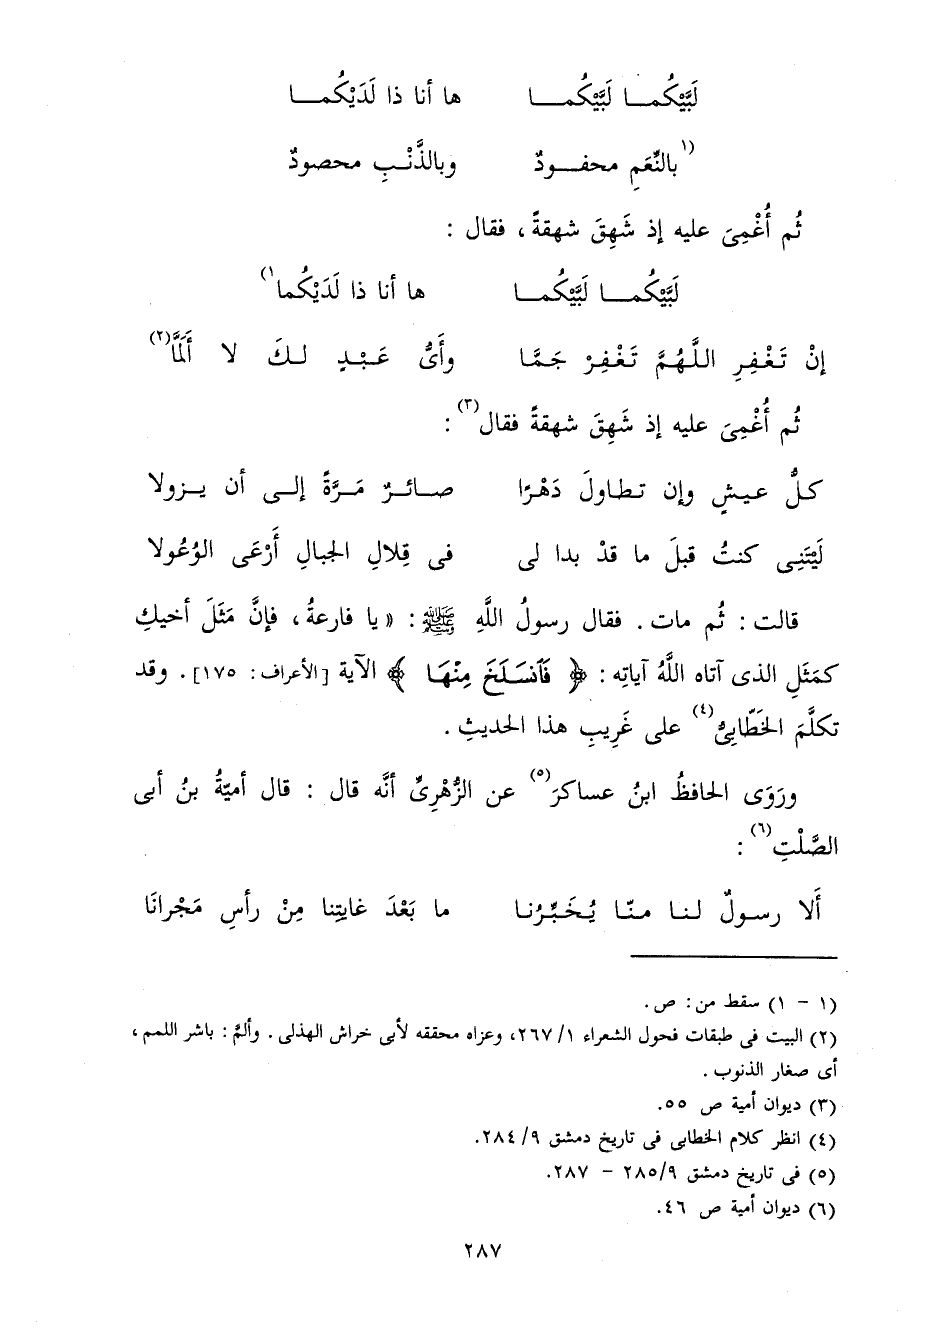 لَبَّيْكُمـــا لَبَّيْكُمـــا ها أنا ذا لَدَيْكُمـــا
(١ بالنِّعَمِ محفـــودٌ وبالذَّنْبِ محصودٌ
ثُم أُغْمِىَ عليه إذ شَهِقَ شهقةً، فقال :
لَبَّيْكُمـــا لَبَّيْكُمـــا ها أنا ذا لَدَيْكُما ١)
إنْ تَغْفِرِ اللَّهُمَّ تَغْفِرْ جَمَّا وأَىُّ عَبْدٍ لكَ لا أَلَمَّا (٢)
ثُم أُغْمِىَ عليه إذ شَهِقَ شهقةً فقال (٣) :
كلُّ عيشٍ وإن تطاولَ دَهْرًا صائرٌ مَرَّةً إلى أن يزولا
لَيْتَنِى كنتُ قبلَ ما قدْ بدا لى فى قِلالِ الجبالِ أَرْعَى الوُعُولا
قالت : ثُم مات . فقال رسولُ اللَّهِ ﷺ : « يا فارعةُ، فإنَّ مَثَلَ أخيكِ
كمَثَلِ الذى آتاه اللَّهُ آياتِه : ﴿ فَٱنسَلَخَ مِنْهَا ﴾ الآية [الأعراف: ١٧٥] . وقد
تكلَّمَ الخَطَّابِىُّ (٤) على غَرِيبِ هذا الحديثِ .
ورَوَى الحافظُ ابنُ عساكرَ (٥) عن الزُّهْرِىِّ أنَّه قال : قال أميّةُ بنُ أبى
الصَّلْتِ (٦) :
أَلا رسولٌ لنا منّا يُخَبِّرُنا ما بَعْدَ غايتِنا مِنْ رأسِ مَجْرانَا
(١ - ١) سقط من : ص .
(٢) البيت فى طبقات فحول الشعراء ١/ ٢٦٧، وعزاه محققه لأبى خراش الهذلى . وألمَّ : باشر اللمم ،
أى صغار الذنوب .
(٣) ديوان أمية ص ٥٥.
(٤) انظر كلام الخطابى فى تاريخ دمشق ٩/ ٢٨٤.
(٥) فى تاريخ دمشق ٩/ ٢٨٥ - ٢٨٧.
(٦) ديوان أمية ص ٤٦.
٢٨٧